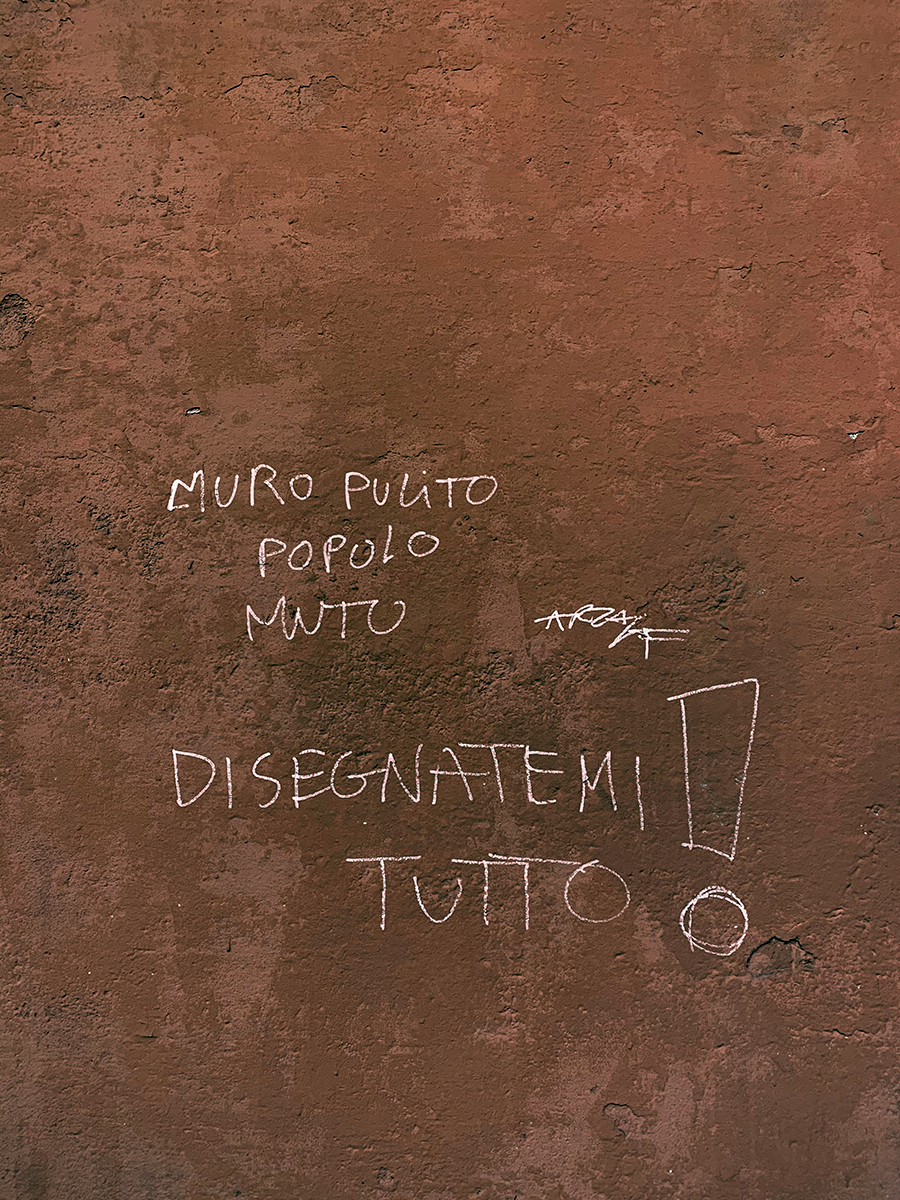 MURO PULiTO
POPOLO
MUTO
DISEGNATEMI
TUTTO!